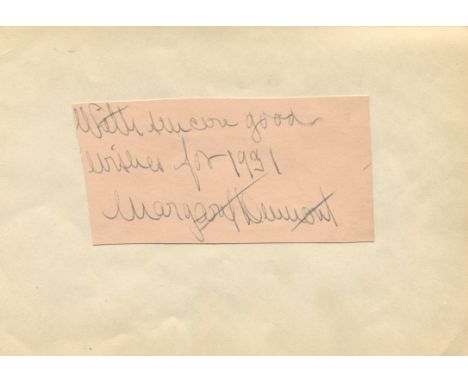 With sincere good
wishes for 1941
Margaret Dumont